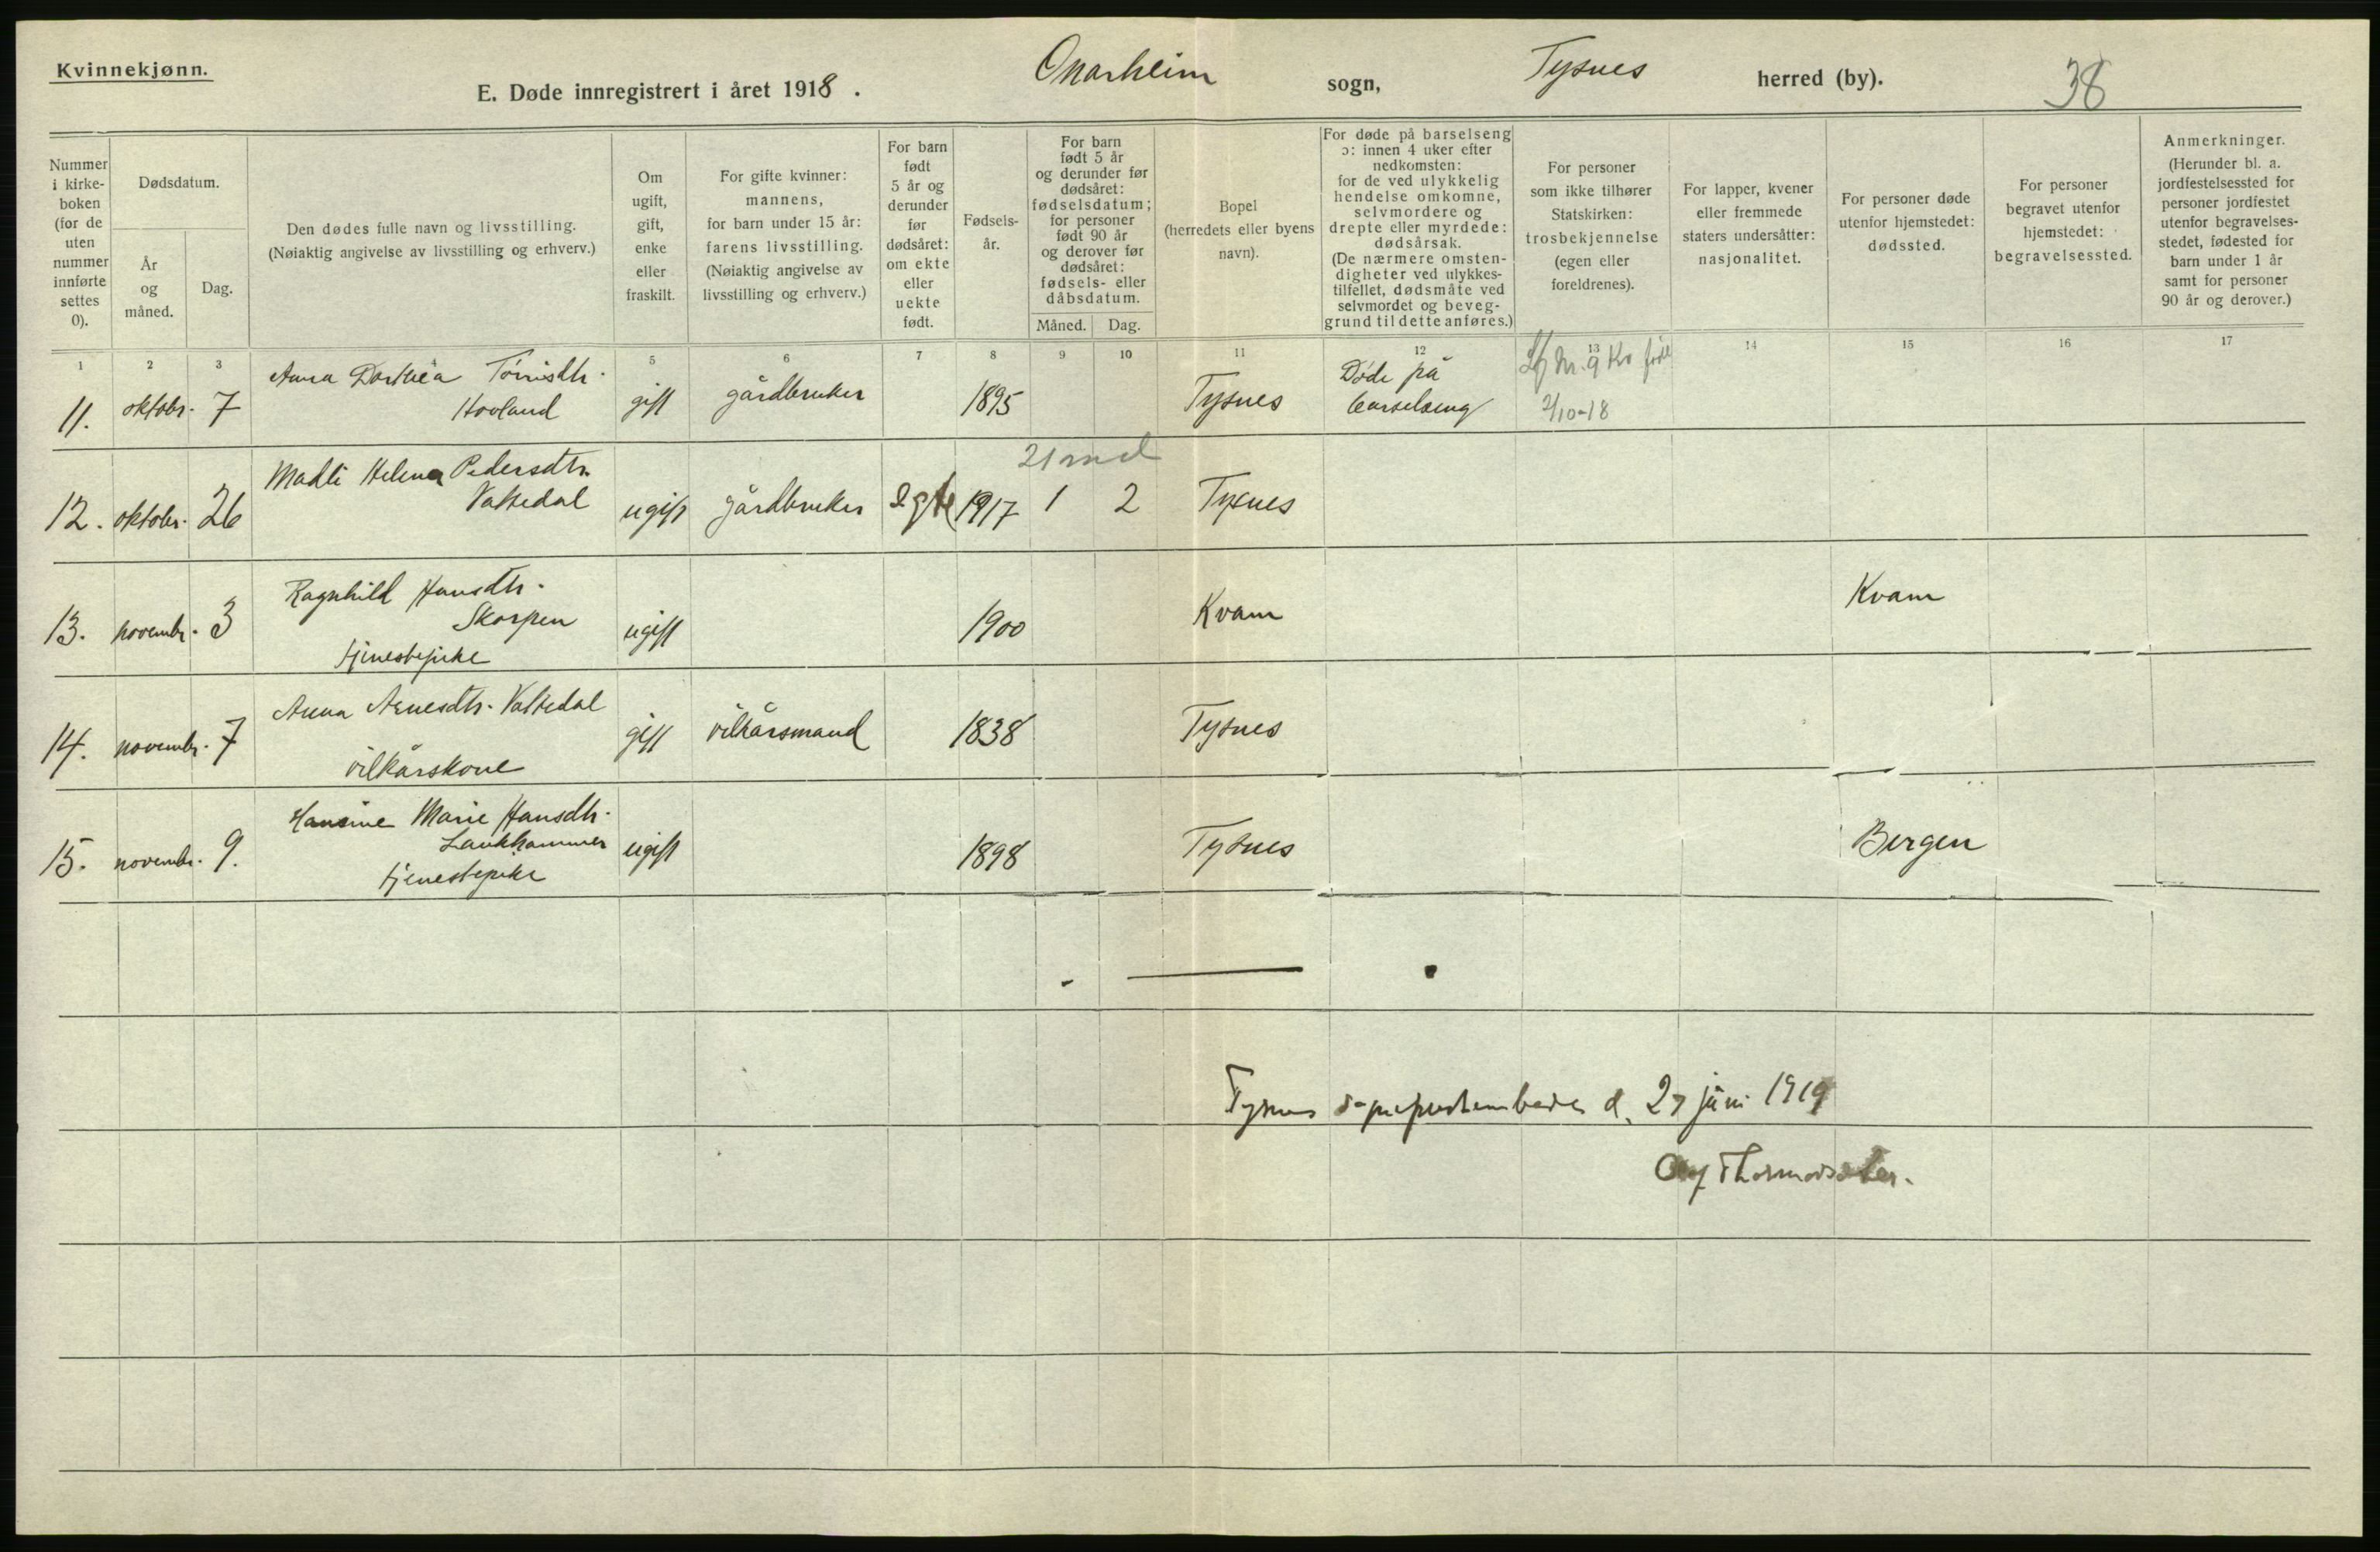 Kvinnekjønn.
E. Døde innregistrert i året 1918.
Onarheim sogn,
Tysnes herred (by).
38
Nummer i kirke-boken (for de uten nummer innførte settes 0).
Dødsdatum.
År og måned.
Dag.
Den dødes fulle navn og livsstilling.
(Nøiaktig angivelse av livsstilling og erhverv.)
Om ugift, gift, enke eller fraskilt.
For gifte kvinner: mannens, for barn under 15 år: farens livsstilling. (Nøiaktig angivelse av livsstilling og erhverv.)
For barn født 5 år og derunder før dødsåret: om ekte eller uekte født.
Fødsels-år.
For barn født 5 år og derunder før dødsåret: fødselsdatum; for personer født 90 år og derover før dødsåret: fødsels- eller dåbsdatum.
Måned.
Dag.
Bopel (herredets eller byens navn).
For døde på barselseng ɔ: innen 4 uker efter nedkomsten: for de ved ulykkelig hendelse omkomne, selvmordere og drepte eller myrdede: dødsårsak. (De nærmere omsten-digheter ved ulykkes-tilfellet, dødsmåte ved selvmordet og beveg-grund til dette anføres.)
For personer som ikke tilhører Statskirken: trosbekjennelse (egen eller foreldrenes).
For lapper, kvener eller fremmede staters undersåtter: nasjonalitet.
For personer døde utenfor hjemstedet: dødssted.
For personer begravet utenfor hjemstedet: begravelsessted.
Anmerkninger. (Herunder bl. a. jordfestelsessted for personer jordfestet utenfor begravelses-stedet, fødested for barn under 1 år samt for personer 90 år og derover.)
1 2 3 4 5 6 7 8 9 10 11 12 13 14 15 16 17
11. oktobr. 7 Anna Dorthea Tørrisdtr. Hovland gift gårdbruker 1895 Tysnes Døde på barselseng
Nr. 9 Kv 2/10-18
12. oktobr. 26 Madli Helena Pedersdtr. Vattedal ugift gårdbruker egte 1917 1 2 Tysnes
21 md
13. novembr. 3 Ragnhild Hansdtr. Skorpen tjenestepike ugift 1900 Kvam Kvam
14. novembr. 7 Anna Arnesdtr. Vattedal vilkårskone gift vilkårsmand 1838 Tysnes
15. novembr. 9. Hansine Marie Hansdtr. Laukhammer tjenestepike ugift 1898 Tysnes Bergen
Tysnes sogneprestembede d. 27 juni 1919
Thormodsæter.